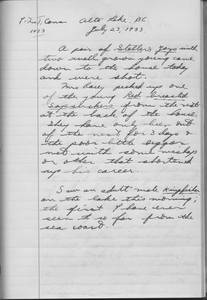 Atlin Lake, BC
1933
July 27, 1933
A pair of Steller's Jays with
two well grown young came
down to the house today
and were shot.
Mrs picked up one
of the young Red breasted
Sapsuckers from the nest
at the back of the house.
They have only been out
of the nest for 3 days &
the poor little beggar
met with some mishap
or other that shortened
up his career.
Saw an adult male Kingfisher
on the lake this morning;
the first I have ever
seen so far from the
sea coast.